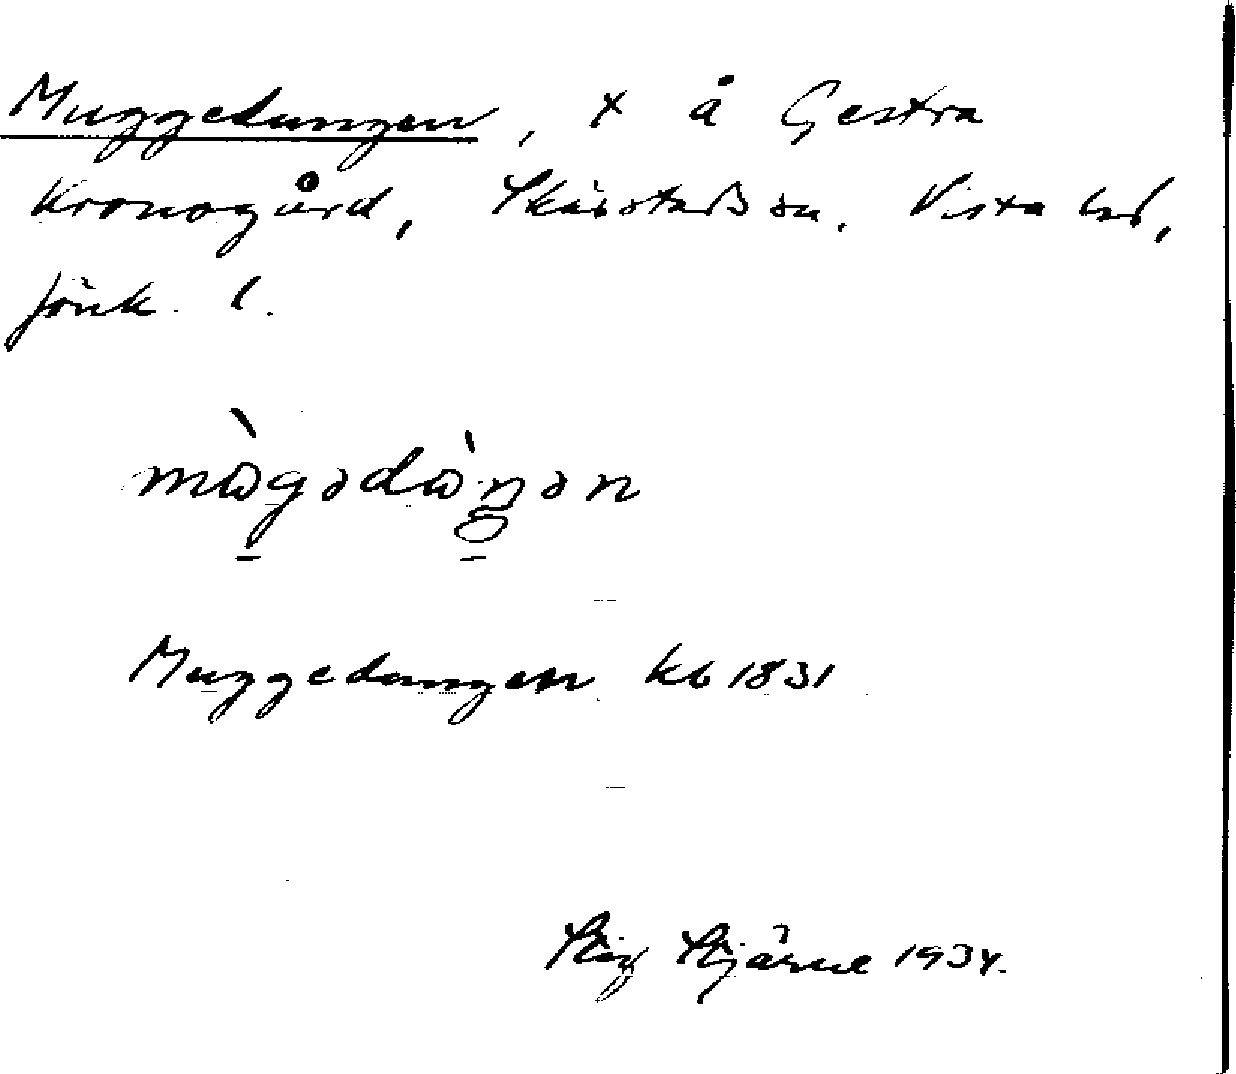 Muggedungen, x å Gestra
Kronogård, Skärstads sn, Vista hd,
Jönk. l.
mὼgədὼŋən
Muggedungen kb 1831
Stig Stjärne 1934.